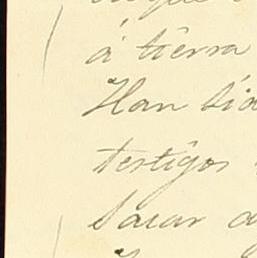 á tierra
Han sid
testigos
Sacar d